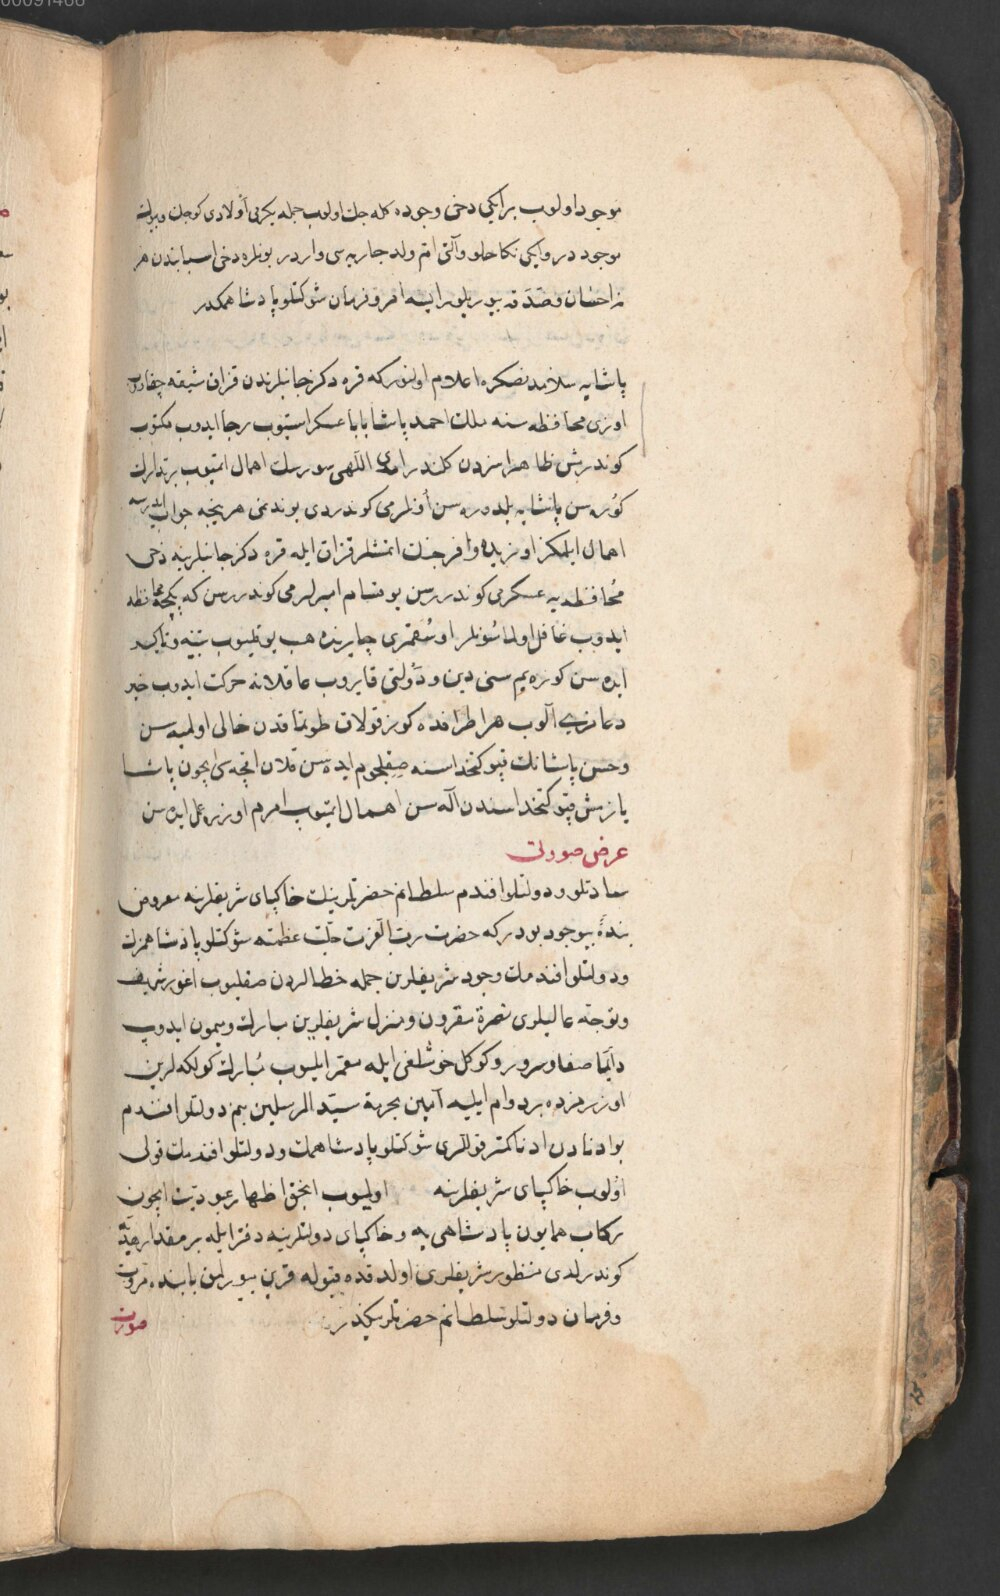 00091466
موجود اولوب بر ایکی دخی وجوده کله جك اولوب جمله یکرمی اولادی کوچك و بیوك
موجود در و ایکی نکاحلو و آلتی ام ولد جاریه سی واردر بونلره دخی اسبابندن هر
نه احسان و صدقه بیوریلور ایسه امر و فرمان شوکتلو پادشاهمکدر
پاشایه سلامدنصکره اعلام اولنور که قره دکز جانبلرندن قزاق شیقه چقاروب
اوزی محافظه سنه ملك احمد پاشا بابا عسکر استیوب رجا ایدوب مکتوب
کوندرمش ظاهرا سزدن کلندر اوده اللهی سورسك اهمال ایتمیوب بر تدارك
کوره سن پاشایه بلدوره سن اونلرمی کوندردی بوندنمی هر نیجه جواب ایدرسه
اهمال ایلمکز اوزیده وافر خنك ایتمشلر قزاق ایله قره دکز جانبلرینه دخی
محافظه یه عسکرمی کوندررسن یوقسا م امیرلرمی کوندررسن که یکچه محافظه
ایدوب غافل اولماسونلر اوشمقتری چایرنده هب یوقلیوب تنبیه و تاکید
ایده سن کوره یم سنی دین و دولتی قایروب عاقلانه حرکت ایدوب خیر
دعامزی آلوب هر اطرافده کوز قولاق طوتمقدن خالی اولمیه سن
و حسن پاشانك قپو کتخداسنه صقیلجوم ایده سن قلان اقچه سی ایچون پاشا
یازمش قپو کتخداسندن آله سن اهمال ایتمیوب امرم اوزره عمل ایده سن
عرض صورتی
سعادتلو و دولتلو افندم سلطانم حضرتلرینك خاکپای شریفلرینه معروض
بندهٔ بیوجود بودر که حضرت رب العزت جلت عظمته شوکتلو پادشاهمزك
و دولتلو افندمك وجود شریفلرین جمله خطالردن صقلیوب اغور شریف
و توجه عالیلری نصرة مقرون و منزل شریفلرین مبارك و میمون ایدوب
دائما صفا و سرور و کوکل خوشلغی ایله معمر ایلیوب مبارك کولکه لرین
اوزرمزده بردوام ایلیه آمین بحرمة سید المرسلین بنم دولتلو افندم
بو ادنادن ادنا کمتر قوللری شوکتلو پادشاهمك و دولتلو افندمك قولی
اولوب خاکپای شریفلرینه اولیوب انجق اظهار عبودیت ایچون
رکاب همایون پادشاهی یه و خاکپای دولتلرینه دفتر ایله بر مقدار هدیه
کوندرلدی منظور شریفلری اولدقده قبوله قرین بیوریلمق بابنده مروت
و فرمان دولتلو سلطانم حضرتلرینکدر
صورت